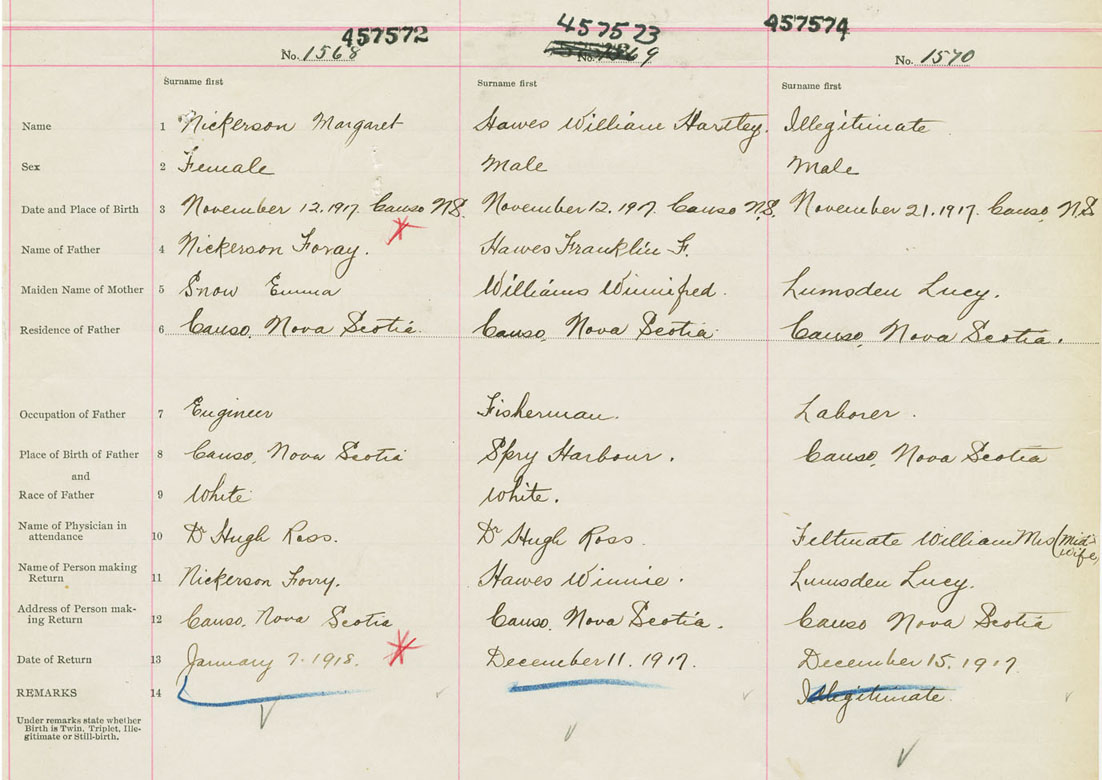 457572 457573 457574
No. 1568 No. 1869 No. 1570
Surname first Surname first Surname first
Name 1 Nickerson Margaret Hawes William Hartley. Illegitimate
Sex 2 Female Male Male
Date and Place of Birth 3 November 12. 1917. Canso N.S. November 12. 1917. Canso N.S. November 21. 1917. Canso, N.S
Name of Father 4 Nickerson Foray. Hawes Franklin F.
Maiden Name of Mother 5 Snow Emma Williams Winnifred. Lumsden Lucy.
Residence of Father 6 Canso, Nova Scotia. Canso, Nova Scotia Canso, Nova Scotia.
Occupation of Father 7 Engineer Fisherman. Laborer.
Place of Birth of Father 8 Canso, Nova Scotia Spry Harbour. Canso, Nova Scotia
and
Race of Father 9 White White.
Name of Physician in
attendance 10 Dr Hugh Ross. Dr Hugh Ross. Feltmate William Mrs (Mid
wife)
Name of Person making
Return 11 Nickerson Forry. Hawes Winnie. Lumsden Lucy.
Address of Person mak-
ing Return 12 Canso, Nova Scotia Canso, Nova Scotia. Canso Nova Scotia
Date of Return 13 January 7. 1918. December 11. 1917. December 15. 1917
REMARKS 14 Illegitimate.
Under remarks state whether
Birth is Twin, Triplet, Ille-
gitimate or Still-birth.